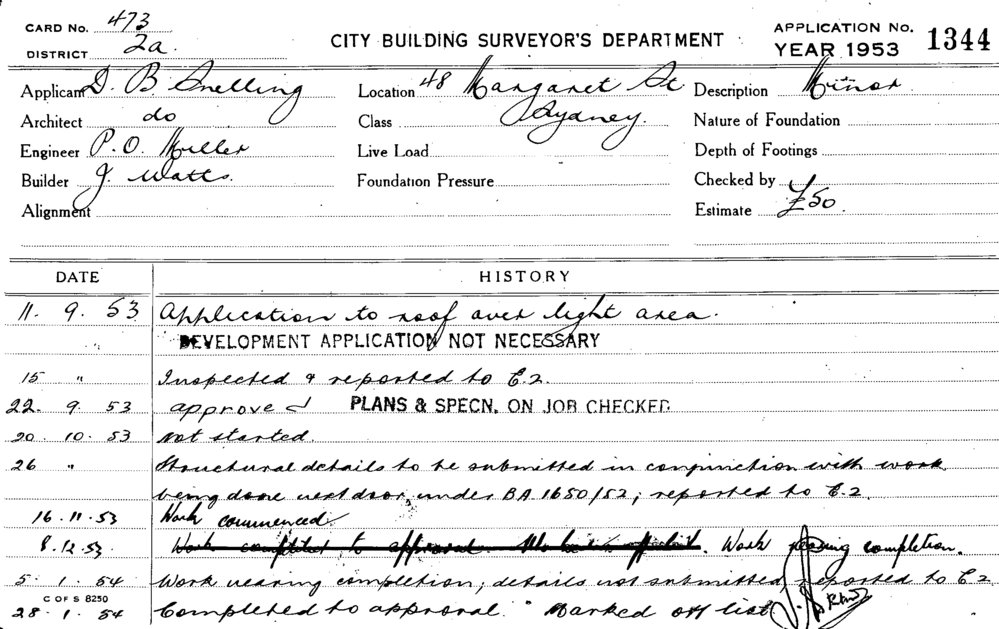 CARD No. 473
DISTRICT 2a.
CITY BUILDING SURVEYOR'S DEPARTMENT
APPLICATION No.
YEAR 1953 1344
Applicant D. B. Snelling Location 48 Margaret St Description Minor.
Architect do Class Sydney. Nature of Foundation
Engineer P. O. Miller Live Load Depth of Footings
Builder J. Watts. Foundation Pressure Checked by
Alignment Estimate £50.
DATE HISTORY
11. 9. 53 Application to roof over light area.
DEVELOPMENT APPLICATION NOT NECESSARY
15 " Inspected & reported to E.2.
22. 9. 53 approved PLANS & SPECN. ON JOB CHECKED
20. 10. 53 Not started.
26 " Structural details to be submitted in conjunction with work
being done next door, under BA 1650/52; reported to E.2.
16. 11. 53 Work commenced.
8. 12. 53. Work completed to approval. Work nearing completion.
5. 1. 54 Work nearing completion; details not submitted, reported to E2
C OF S 8250
28. 1. 54 Completed to approval. Marked off list